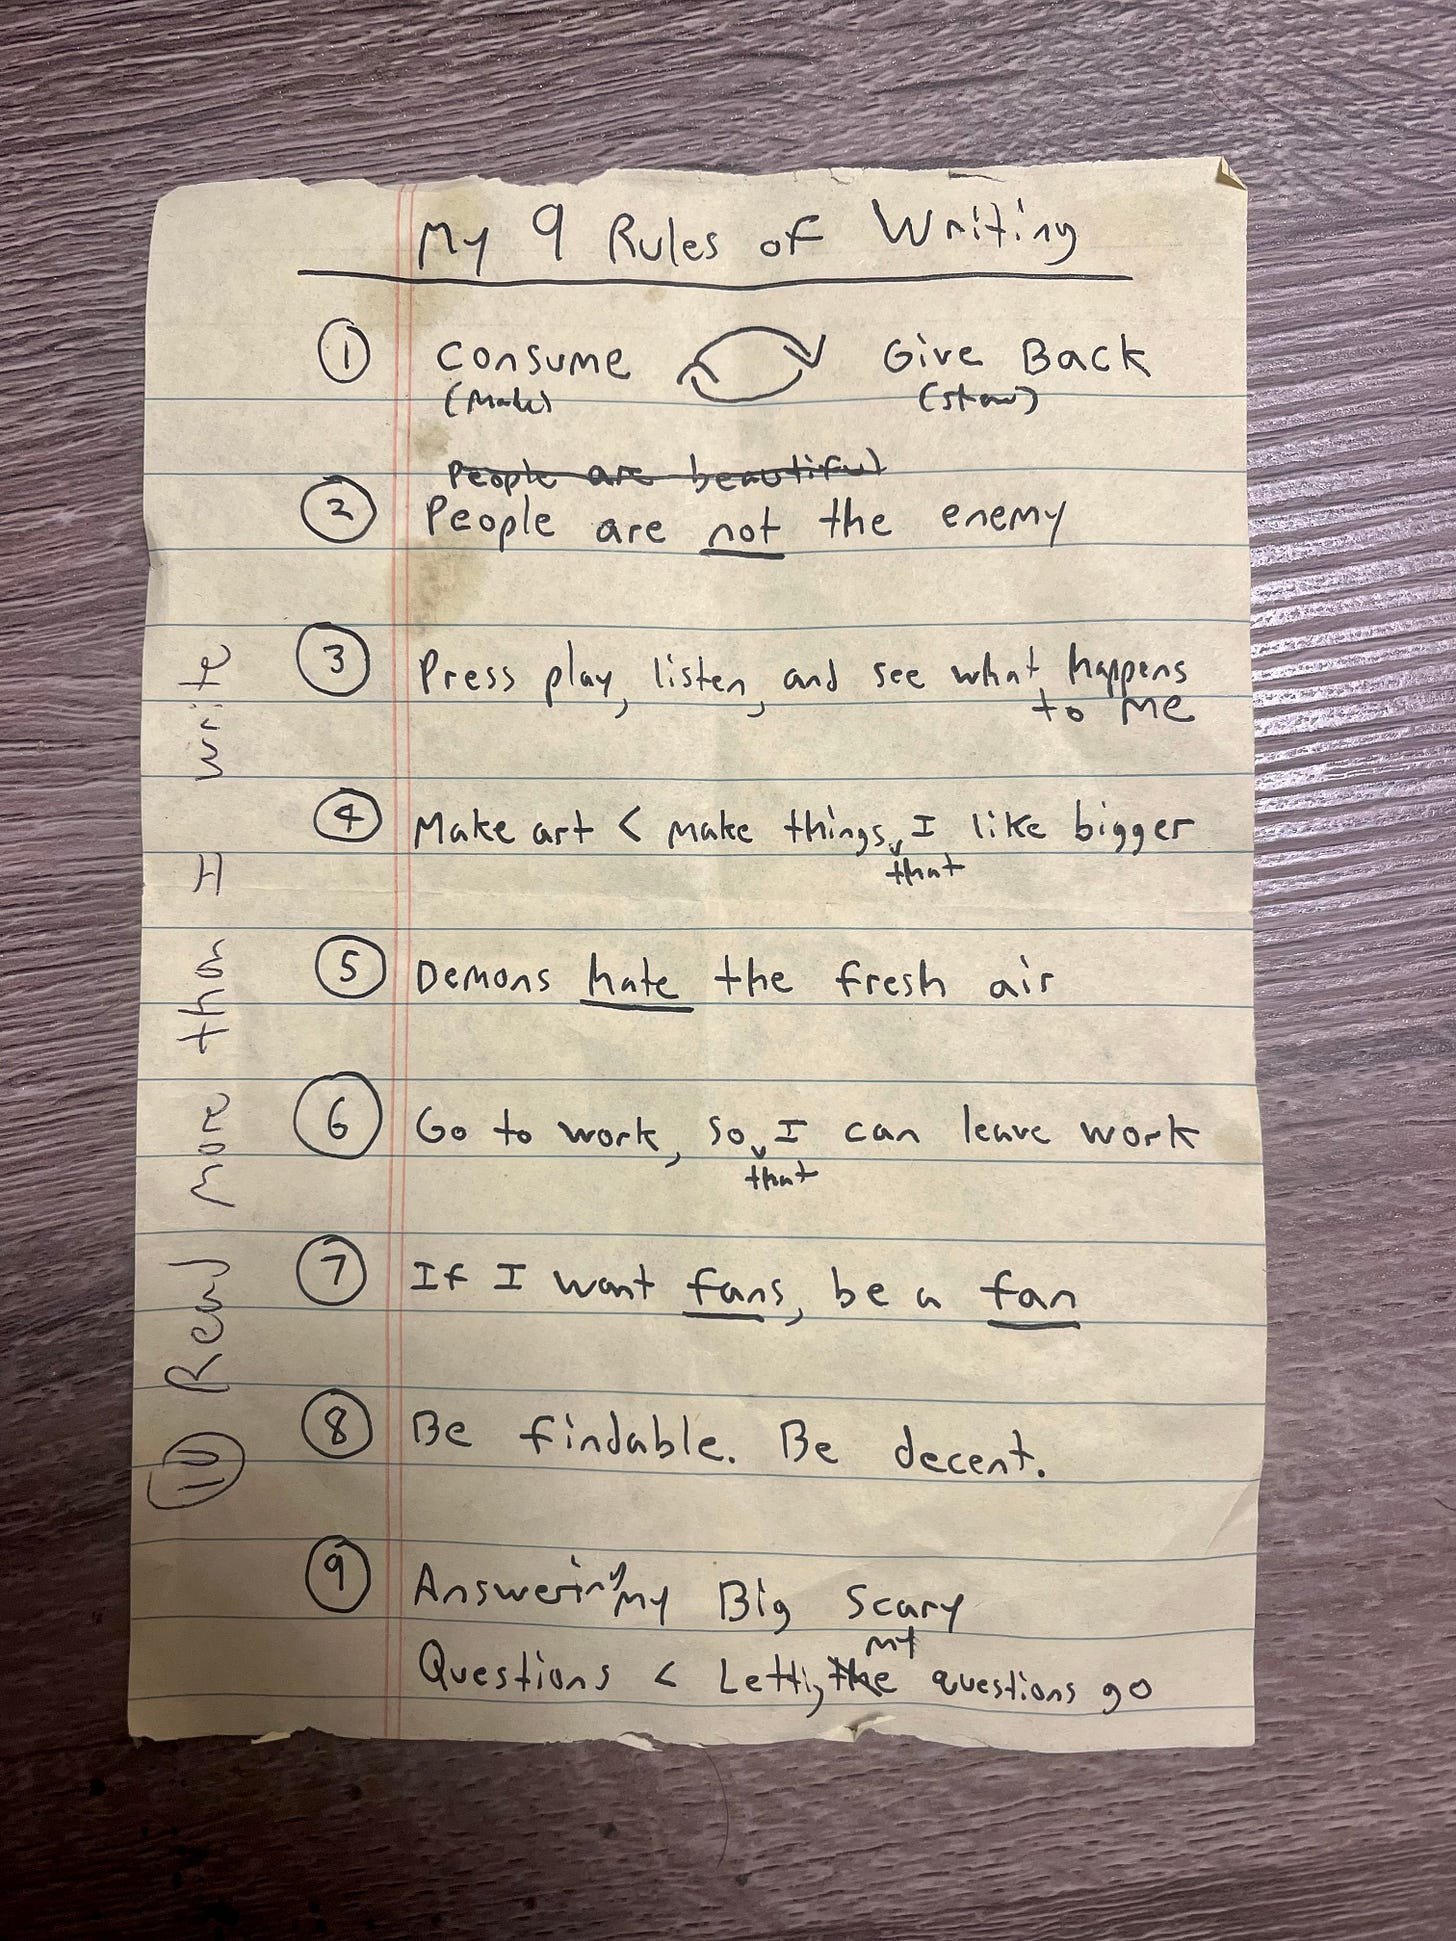 My 9 Rules of Writing
1 Consume Give Back
(Make) (Steal)
People are beautiful
2 People are not the enemy
3 Press play, listen, and see what happens
to me
4 Make art < make things that I like bigger
5 Demons hate the fresh air
6 Go to work, so that I can leave work
7 If I want fans, be a fan
8 Be findable. Be decent.
9 Answering my Big Scary
Questions < Letting the my questions go
10 Read more than I write